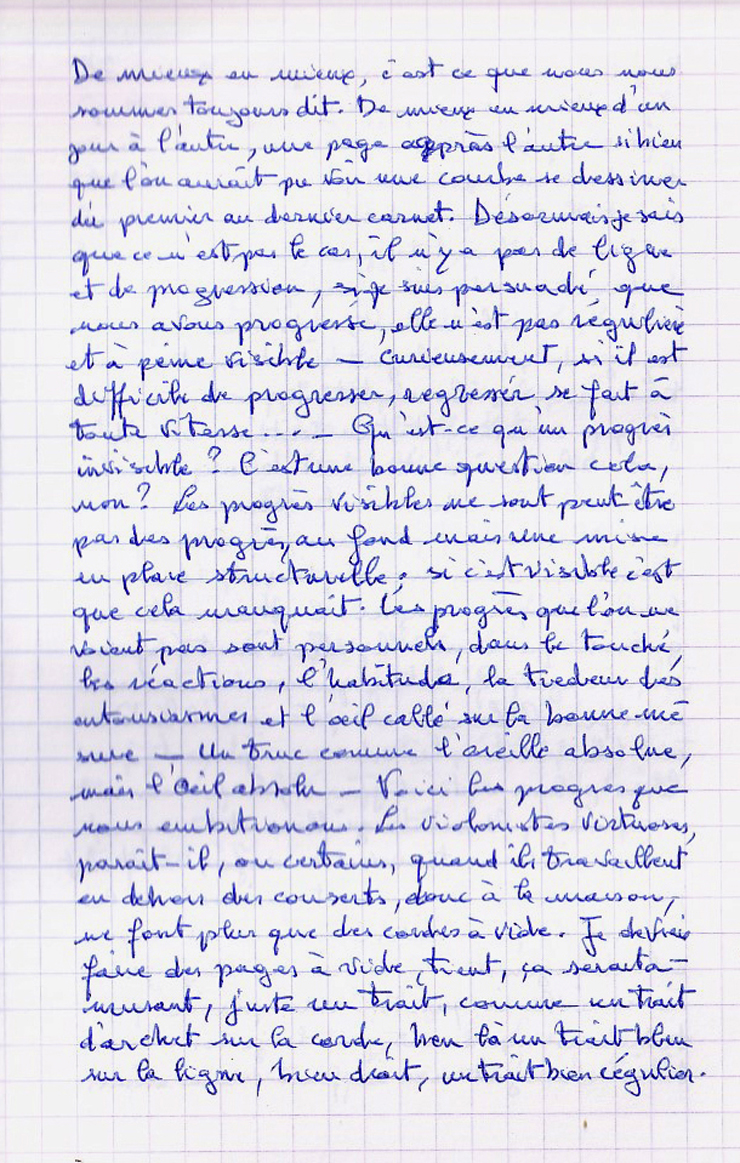 De mieux en mieux, c'est ce que nous nous
sommes toujours dit. De mieux en mieux d'un
jour à l'autre, une page après l'autre si bien
que l'on aurait pu voir une courbe se dessiner
du premier au dernier carnet. Désormais je sais
que ce n'est pas le cas, il n'y a pas de ligne
et de progression, si je suis persuadé que
nous avons progressé, elle n'est pas régulière
et à peine visible — Curieusement, si il est
difficile de progresser, regresser se fait à
toute vitesse... — Qu'est-ce qu'un progrès
invisible ? C'est une bonne question cela,
non ? Les progrès visibles ne sont peut être
pas des progrès, au fond mais une mise
en place structurelle ; si c'est visible c'est
que cela manquait. Les progrès que l'on ne
voient pas sont personnels, dans le touché,
les réactions, l'habitude, la tiedeur des
entousiasmes et l'œil callé sur la bonne me
sure — Un truc comme l'oreille absolue,
mais l'œil absolu — Voici les progres que
nous ambitionons. Les violonistes virtuoses,
parait-il, ou certains, quand ils travaillent
en dehors des conserts, donc à la maison,
ne font plus que des cordes à vide. Je devrais
faire des pages à vide, tient, ça serait a-
musant, juste un trait, comme un trait
d'archet sur la corde, ben là un trait bleu
sur la ligne, bien droit, un trait bien régulier.